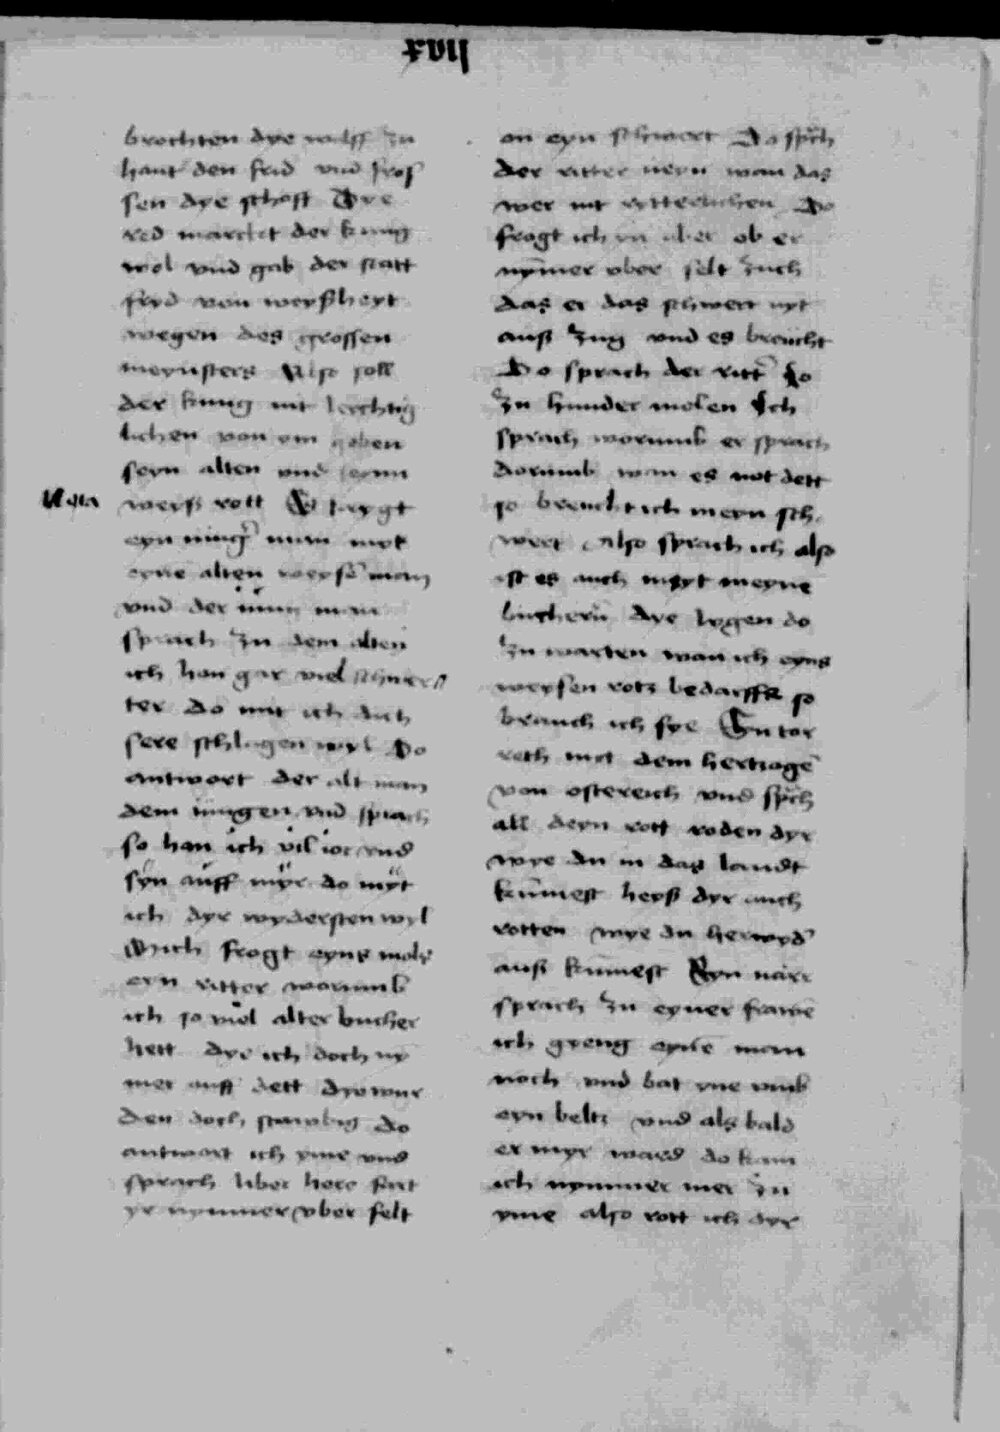 brochten dye wolff zu
hant den frid vnd fros
sen dye schoff Dye
red marcket der kunig
wol vnd gab der statt
fryd von weyßheyt
wegen des grossen
meynsters Also soll
der kunig nit lerchtig
lichen von em geben
seyn alten vnd
weyß rott Es krygt
eyn man myt
eyne alten weyse man
vnd der man
sprach zu dem alten
ich hon gar viel schwer
ter do mit ich dich
sere schlagen wyl Do
antwort der alt man
dem iungen vnd sprach
so han ich vil ior vnd
syn auff myr do myt
ich dyr wydersten wyl
Mich frogt eyns mols
eyn ritter worumb
ich so viel alter bucher
hett dye ich doch ny
mer auff dett dye wur
den doch stawbig do
antwort ich yme vnd
sprach liber here fert
yr nymmer vber felt
on eyn schwert Do sprch
der ritter neyn wan das
wer nit rytterlichen Do
frogt ich yn aber ob er
nymer vber felt zuch
das er das schwert nyt
auß zug vnd es breucht
Do sprach der ritt Jo
zu hunder molen Ich
sprach worumb er sprach
dorumb wan es not dett
so breucht ich meyn sch
wert also sprach ich also
ist es auch myt meyne
buchern dye lygen do
zu warten wan ich eyns
weysen rotz bedarff so
brauch ich sye Eyn tor
reth mit dem hertzoge
von ostereich vnd sprch
all deyn rott roden dyr
wye du in das landt
kumest heyß dyr auch
rotten wye du herwyd
auß kumest Eyn narr
sprach zu eyner frawe
ich gyeng eyne man
noch vnd bat yne vmb
eyn beltz vnd als bald
er myr ward do kam
ich nymmer mer zu
yme also rott ich dyr